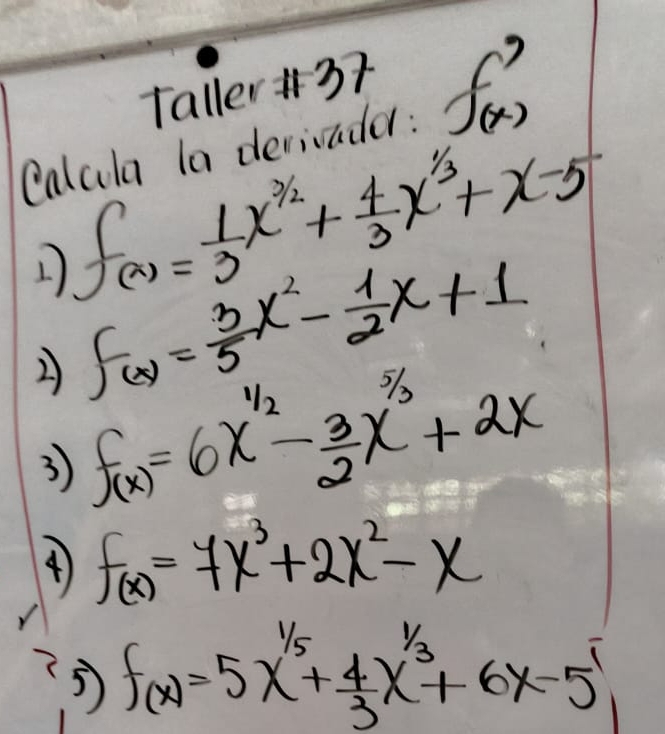 Taller #37
Calcula la derivada: f'(x)
1) f(x) = 1/3 x^3/2 + 4/3 x^1/3 + x - 5
2) f(x) = 3/5 x^2 - 1/2 x + 1
3) f(x) = 6x^1/2 - 3/2 x^5/3 + 2x
4) f(x) = 7x^3 + 2x^2 - x
5) f(x) = 5x^1/5 + 4/3 x^1/3 + 6x - 5